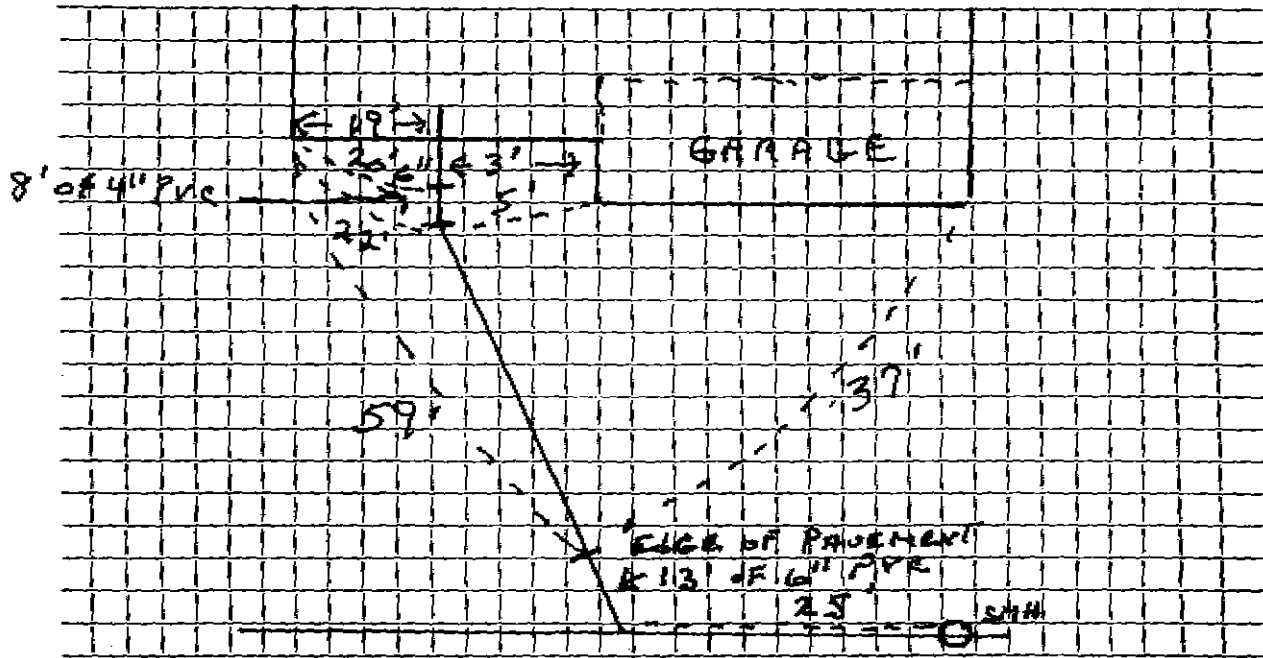 19'
20'
6" 3'
GARAGE
8' of 4" PVC
5'
22'
37'
59'
EDGE OF PAVEMENT
13' OF 6" PVC
25'
SMH